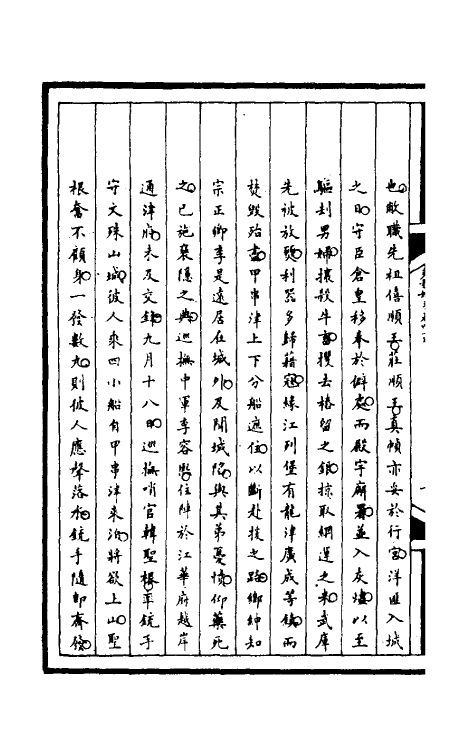 也敝職先祖僖順王莊順王真幀亦妥於行宮洋匪入城
之日守臣倉皇移奉於僻處而殿宇廨署並入灰燼以至
驅刦男婦攘殺牛畜攫去樁留之銀掠取綱運之米武庫
先被放頭利器多歸藉寇緣江列堡有龍津廣成等鎮而
焚毀殆盡甲串津上下分船遮住以斷赴援之路鄉紳知
宗正卿李是遠居在城外及聞城陷與其弟憂憤仰藥死
之已施褒隱之典巡撫中軍李容熙住陣於江華府越岸
通津府未及交鋒九月十八日巡撫哨官韓聖根率銃手
守文殊山城彼人乘四小船自甲串津來泊將欲上山聖
根奮不顧身一發數丸則彼人應聲落水銃手隨卽齊發